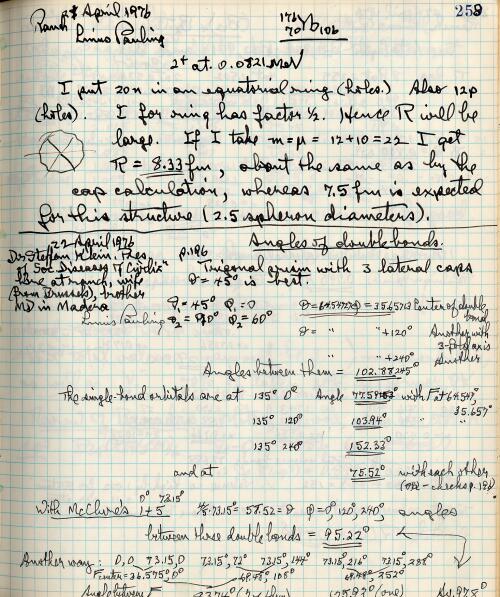 259
Ranch 8 April 1976
Linus Pauling
176 Yb 106
70
2+ at 0.0821 MeV
I put 20n in an equatorial ring (holes.) Also 12p
(holes). I for ring has factor ½. Hence R will be
large. If I take m=μ = 12+10=22 I get
R = 8.33 fm, about the same as by the
cap calculation, whereas 7.5 fm is expected
for this structure (2.5 spheron diameters).
22 April 1976
Angles of double bonds.
Dr Steffan Klein. Pres
of Soc Diseases of
here at ranch, wife
(from Brussels), brother
MD in Madera
p.196
Trigonal prism with 3 lateral caps
θ = 45° is best.
Linus Pauling
θ1 = 45° φ1 = 0
θ2 = 90° φ2 = 60°
= 35.6573 Center of double bond
θ = " " +120° Another with
3-fold axis
" " +240° Another
Angles between them = 102.88245°
The single-bond orbitals are at 135° 0° Angle with F at 64.547°,
35.657°
135° 120° 103.94° " "
135° 240° 152.33°
and at 75.52° with each other
(checks p.
With McClure's 1+5 0° 73.15° 4/5·73.15° = 58.52 = θ φ = 0°, 120°, 240°, angles
between three double bonds = 95.22°
Another way: 0, 0 73.15, 0 73.15°, 72° 73.15°, 144° 73.15°, 216° 73.15°, 288°
F center = 36.575°, 0° 108° 252°
Angle between